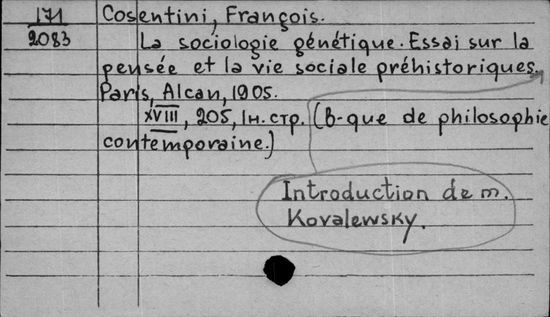 171
2083
Cosentini, François.
La sociologie génétique. Essai sur la
pensée et la vie sociale préhistoriques.
Paris, Alcan, 1905.
XVIII, 205, 1н. стр. (B-que de philosophie
contemporaine.)
Introduction de m.
Kovalewsky.